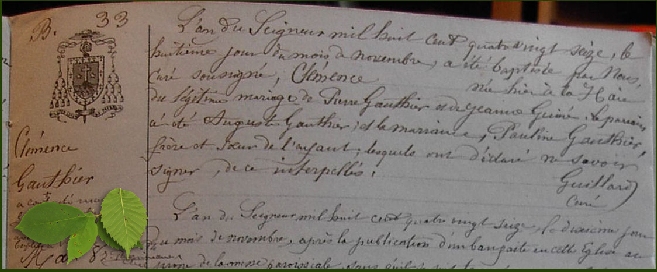 B. 33
L'an du Seigneur mil huit cent quatre vingt seize, le
huitième jour du mois de novembre, a été baptisée par Nous,
curé soussigné, Clémence née hier de la Haie
du légitime mariage de Pierre Gauthier et de Jeanne le parrain
a été Auguste Gauthier; et la marraine, Pauline Gauthier,
frère et sœur de l'enfant; lesquels ont déclaré ne savoir
signer, de ce interpellés.
Guillard
curé
Clémence
Gauthier
L'an du Seigneur mil huit cent quatre vingt seize le dixième jour
du mois de novembre, après la publication d'un ban faite en cette Eglise au
de la messe paroissiale, sans qu'il